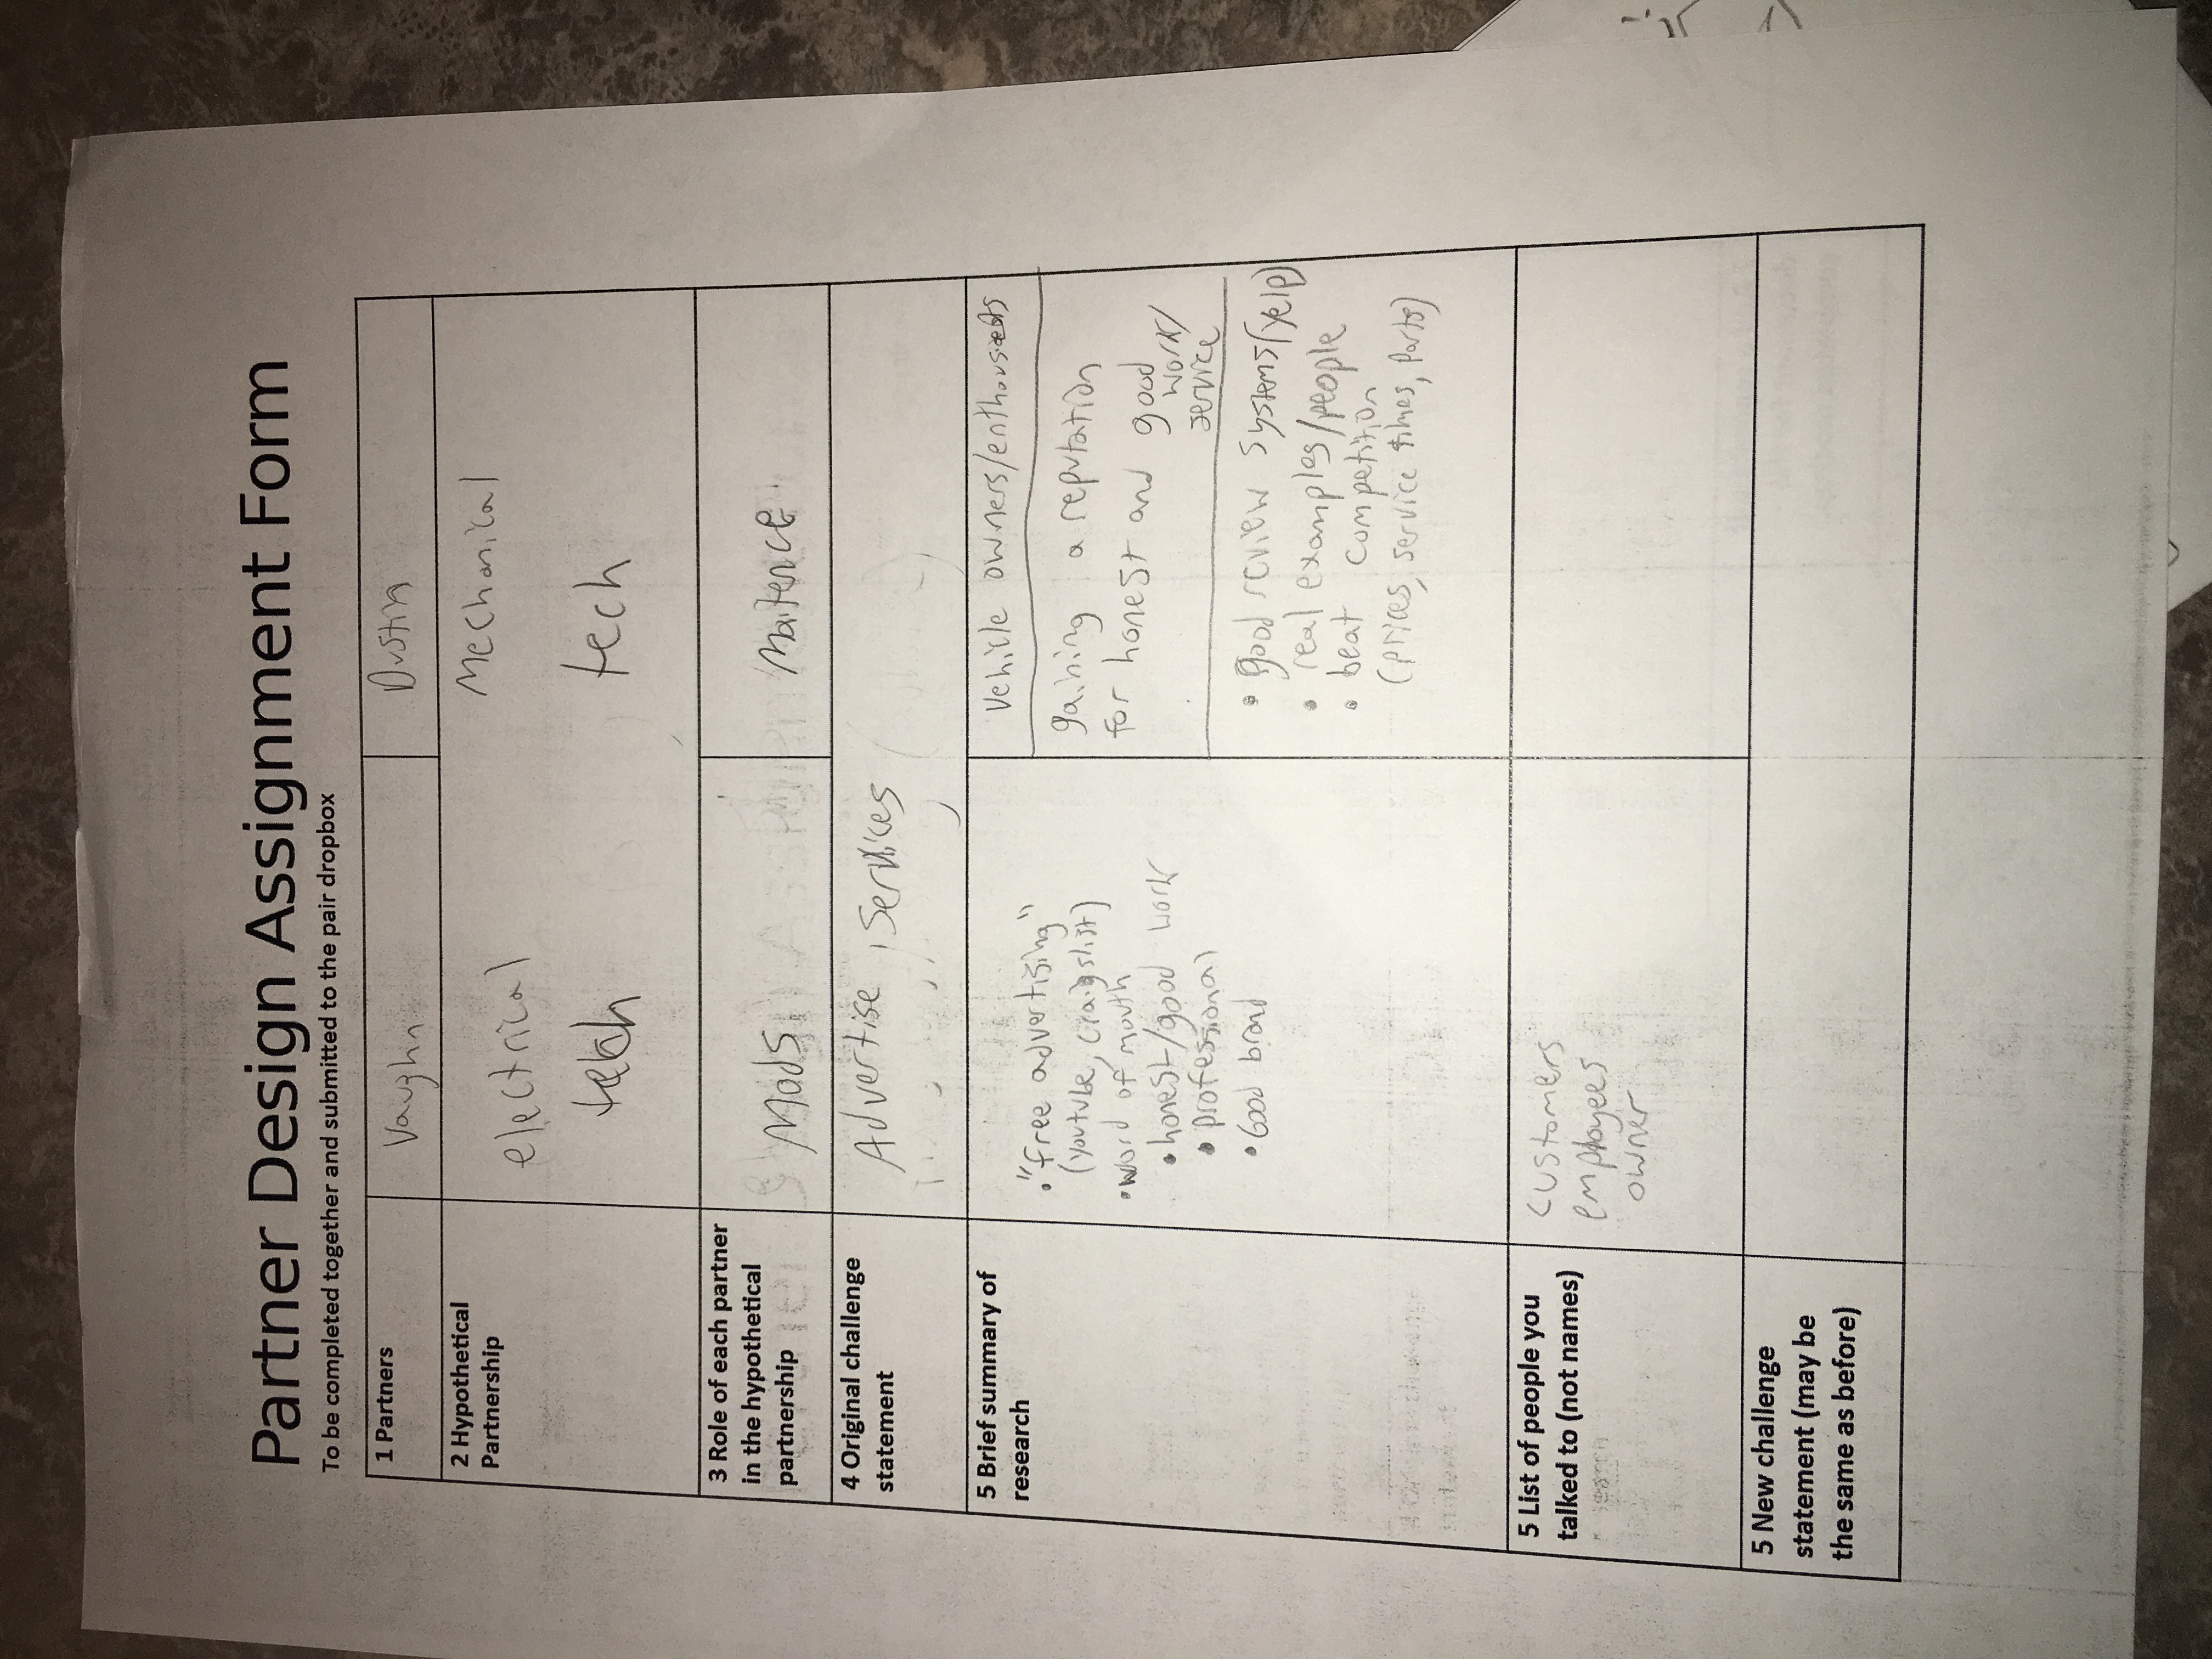 Partner Design Assignment Form
To be completed together and submitted to the pair dropbox
1 Partners
Vaughn
Dustin
2 Hypothetical
Partnership
electrical
tech
Mechanical
tech
3 Role of each partner
in the hypothetical
partnership
Mods
Maitence
4 Original challenge
statement
Advertise, Services
5 Brief summary of
research
• "free advertising"
(youtube, craigslist)
• word of mouth
• honest/good work
• professional
• Good brand
Vehicle owners/enthousests
gaining a reputation
for honest and good
work/
service
• good review systems (yelp)
• real examples/people
• beat competition
(prices, service times, Parts)
5 List of people you
talked to (not names)
customers
employees
owner
5 New challenge
statement (may be
the same as before)